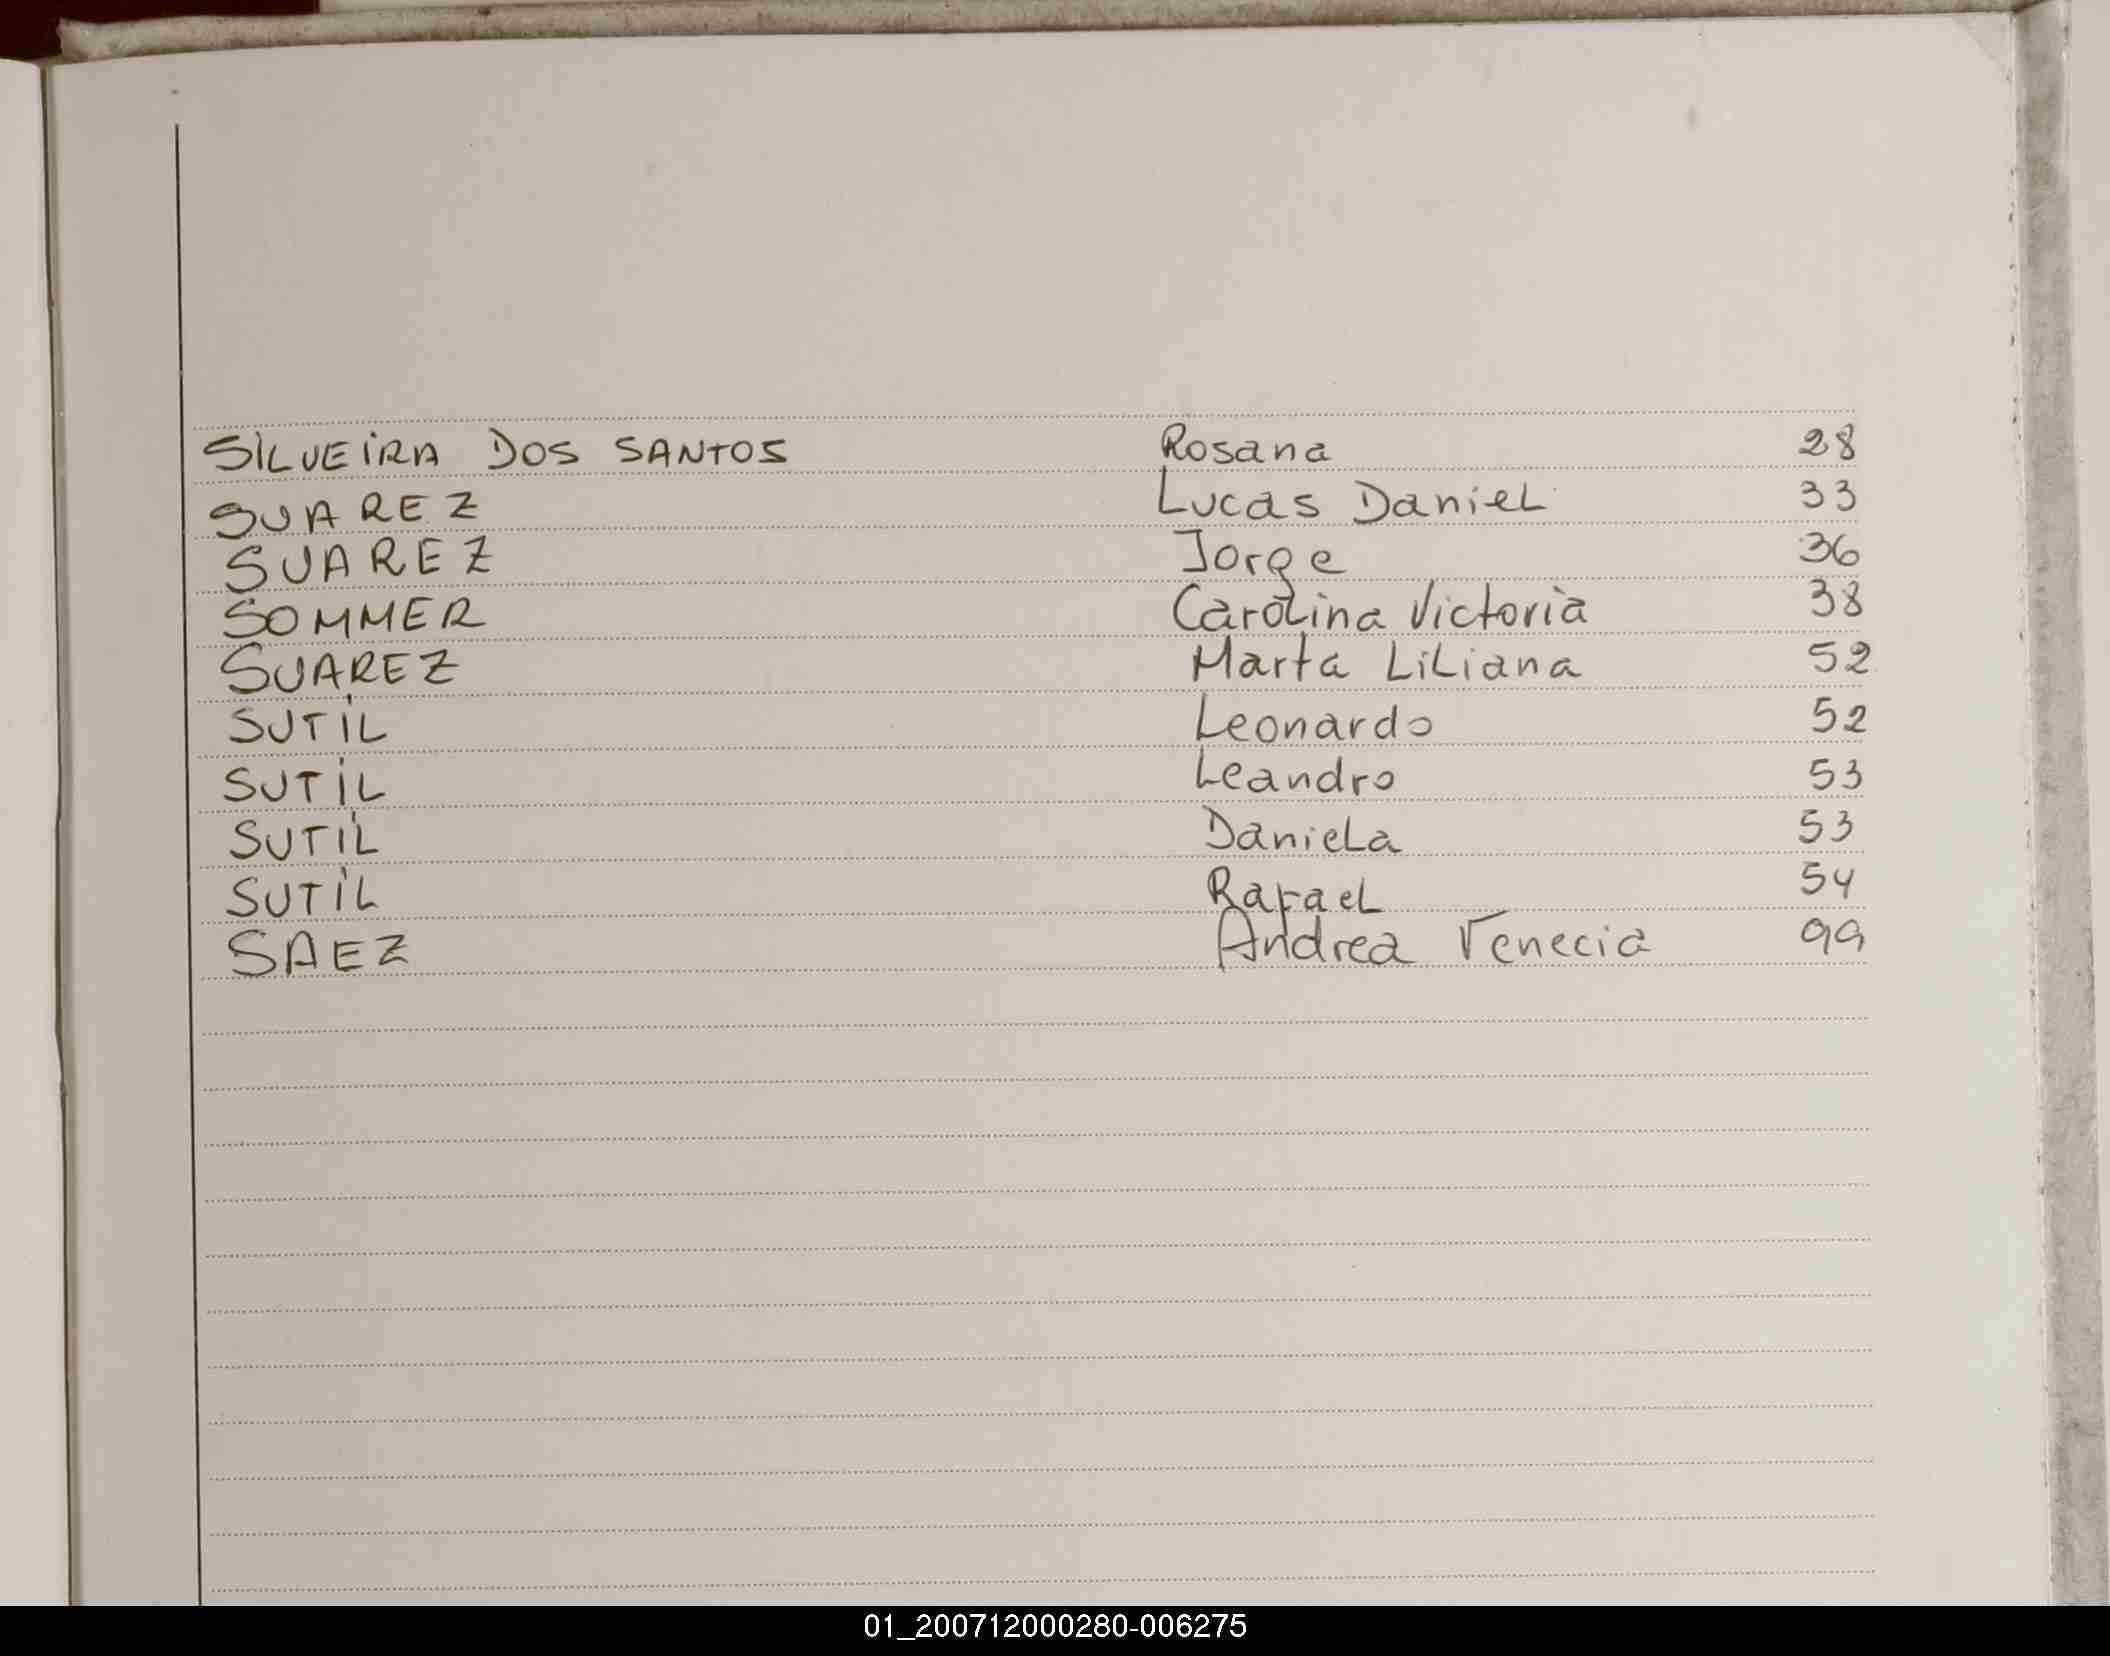 SILVEIRA DOS SANTOS Rosana 28
SUAREZ Lucas Daniel 33
SUAREZ Jorge 36
SOMMER Carolina Victoria 38
SUAREZ Marta Liliana 52
SUTIL Leonardo 52
SUTIL Leandro 53
SUTIL Daniela 53
SUTIL Rafael 54
SAEZ Andrea Venecia 99
01_200712000280-006275